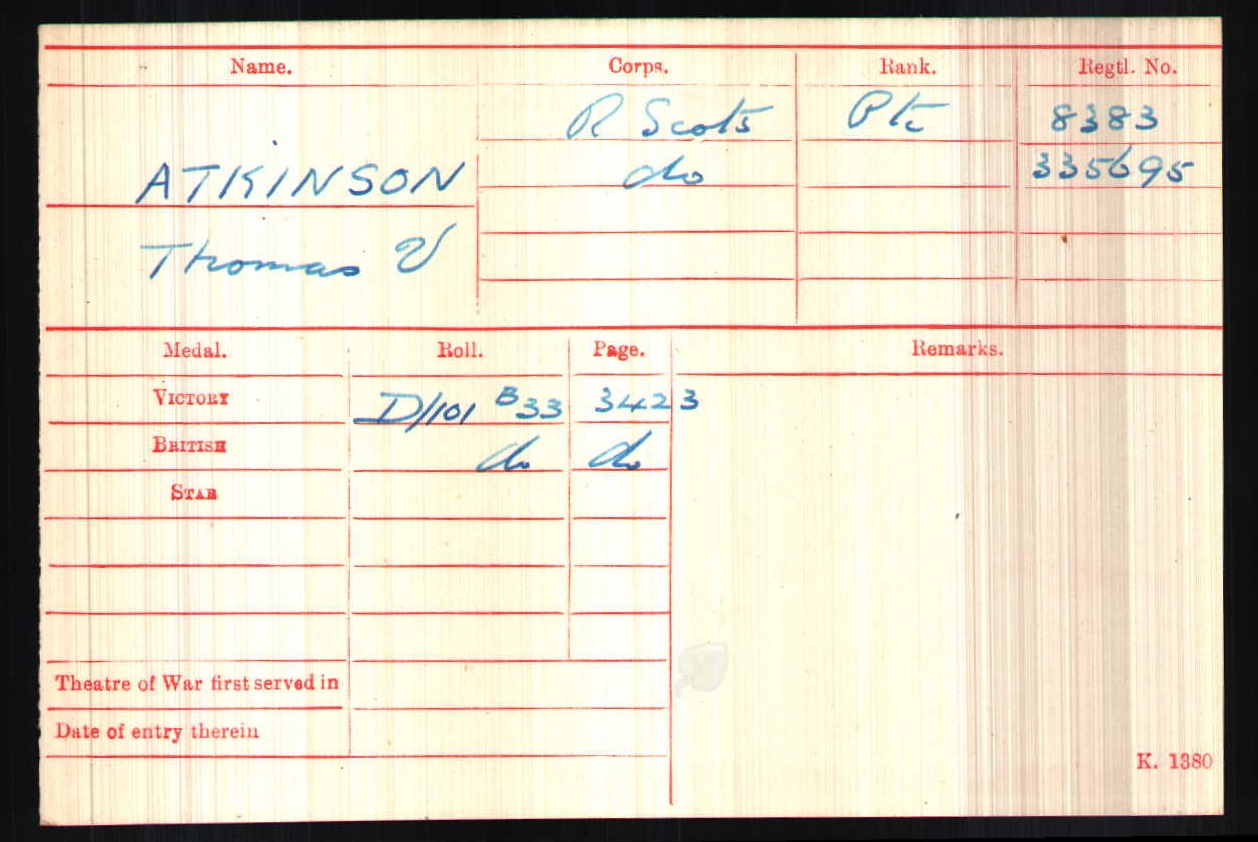 Name. Corps. Rank. Regtl. No.
R Scots Pte 8383
ATKINSON do 335695
Thomas V
Medal. Roll. Page. Remarks.
VICTORY D/101 B33 3423
BRITISH do do
STAR
Theatre of War first served in
Date of entry therein
K. 1380